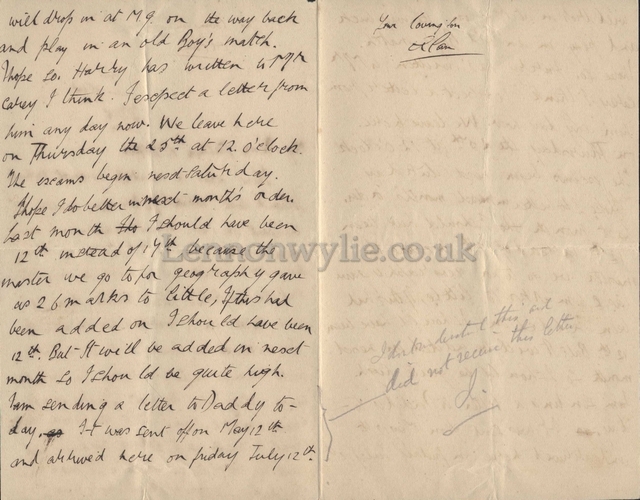 will drop in at M.G. on the way back
and play in an old Boy's match.
I hope so. Harry has written to Mr
Carey I think. I expect a letter from
him any day now. We leave here
on Thursday the 25th at 12. o'clock.
The exams begin next Saturday.
I hope I do better in next month's order.
Last month I should have been
12th instead of 17th because the
master we go to for geography gave
us 26 marks to little, if this had
been added on I should have been
12th. But It will be added in next
month so I should be quite high.
I am sending a letter to Daddy to-
day. It was sent off on May 12th
and arrived here on friday July 12th.
Your loving Son
Alan
this and
did not receive this letter
J.
Lennonwylie.co.uk